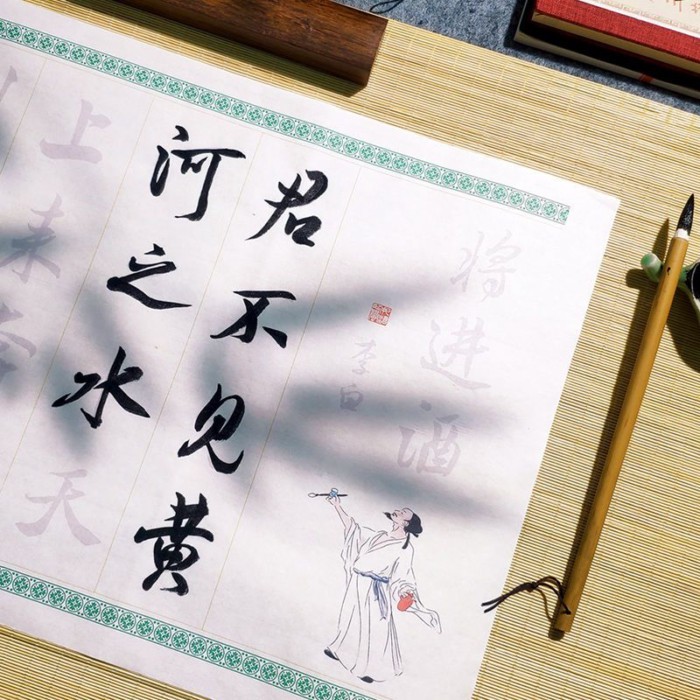 将进酒
李白
君不见黄
河之水
天
上来奔